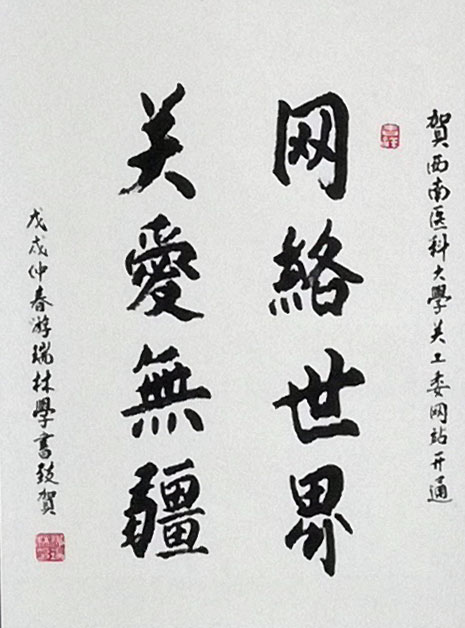 贺西南医科大學关工委网站开通
网絡世界
关愛無疆
戊戌仲春游瑞林學書致贺